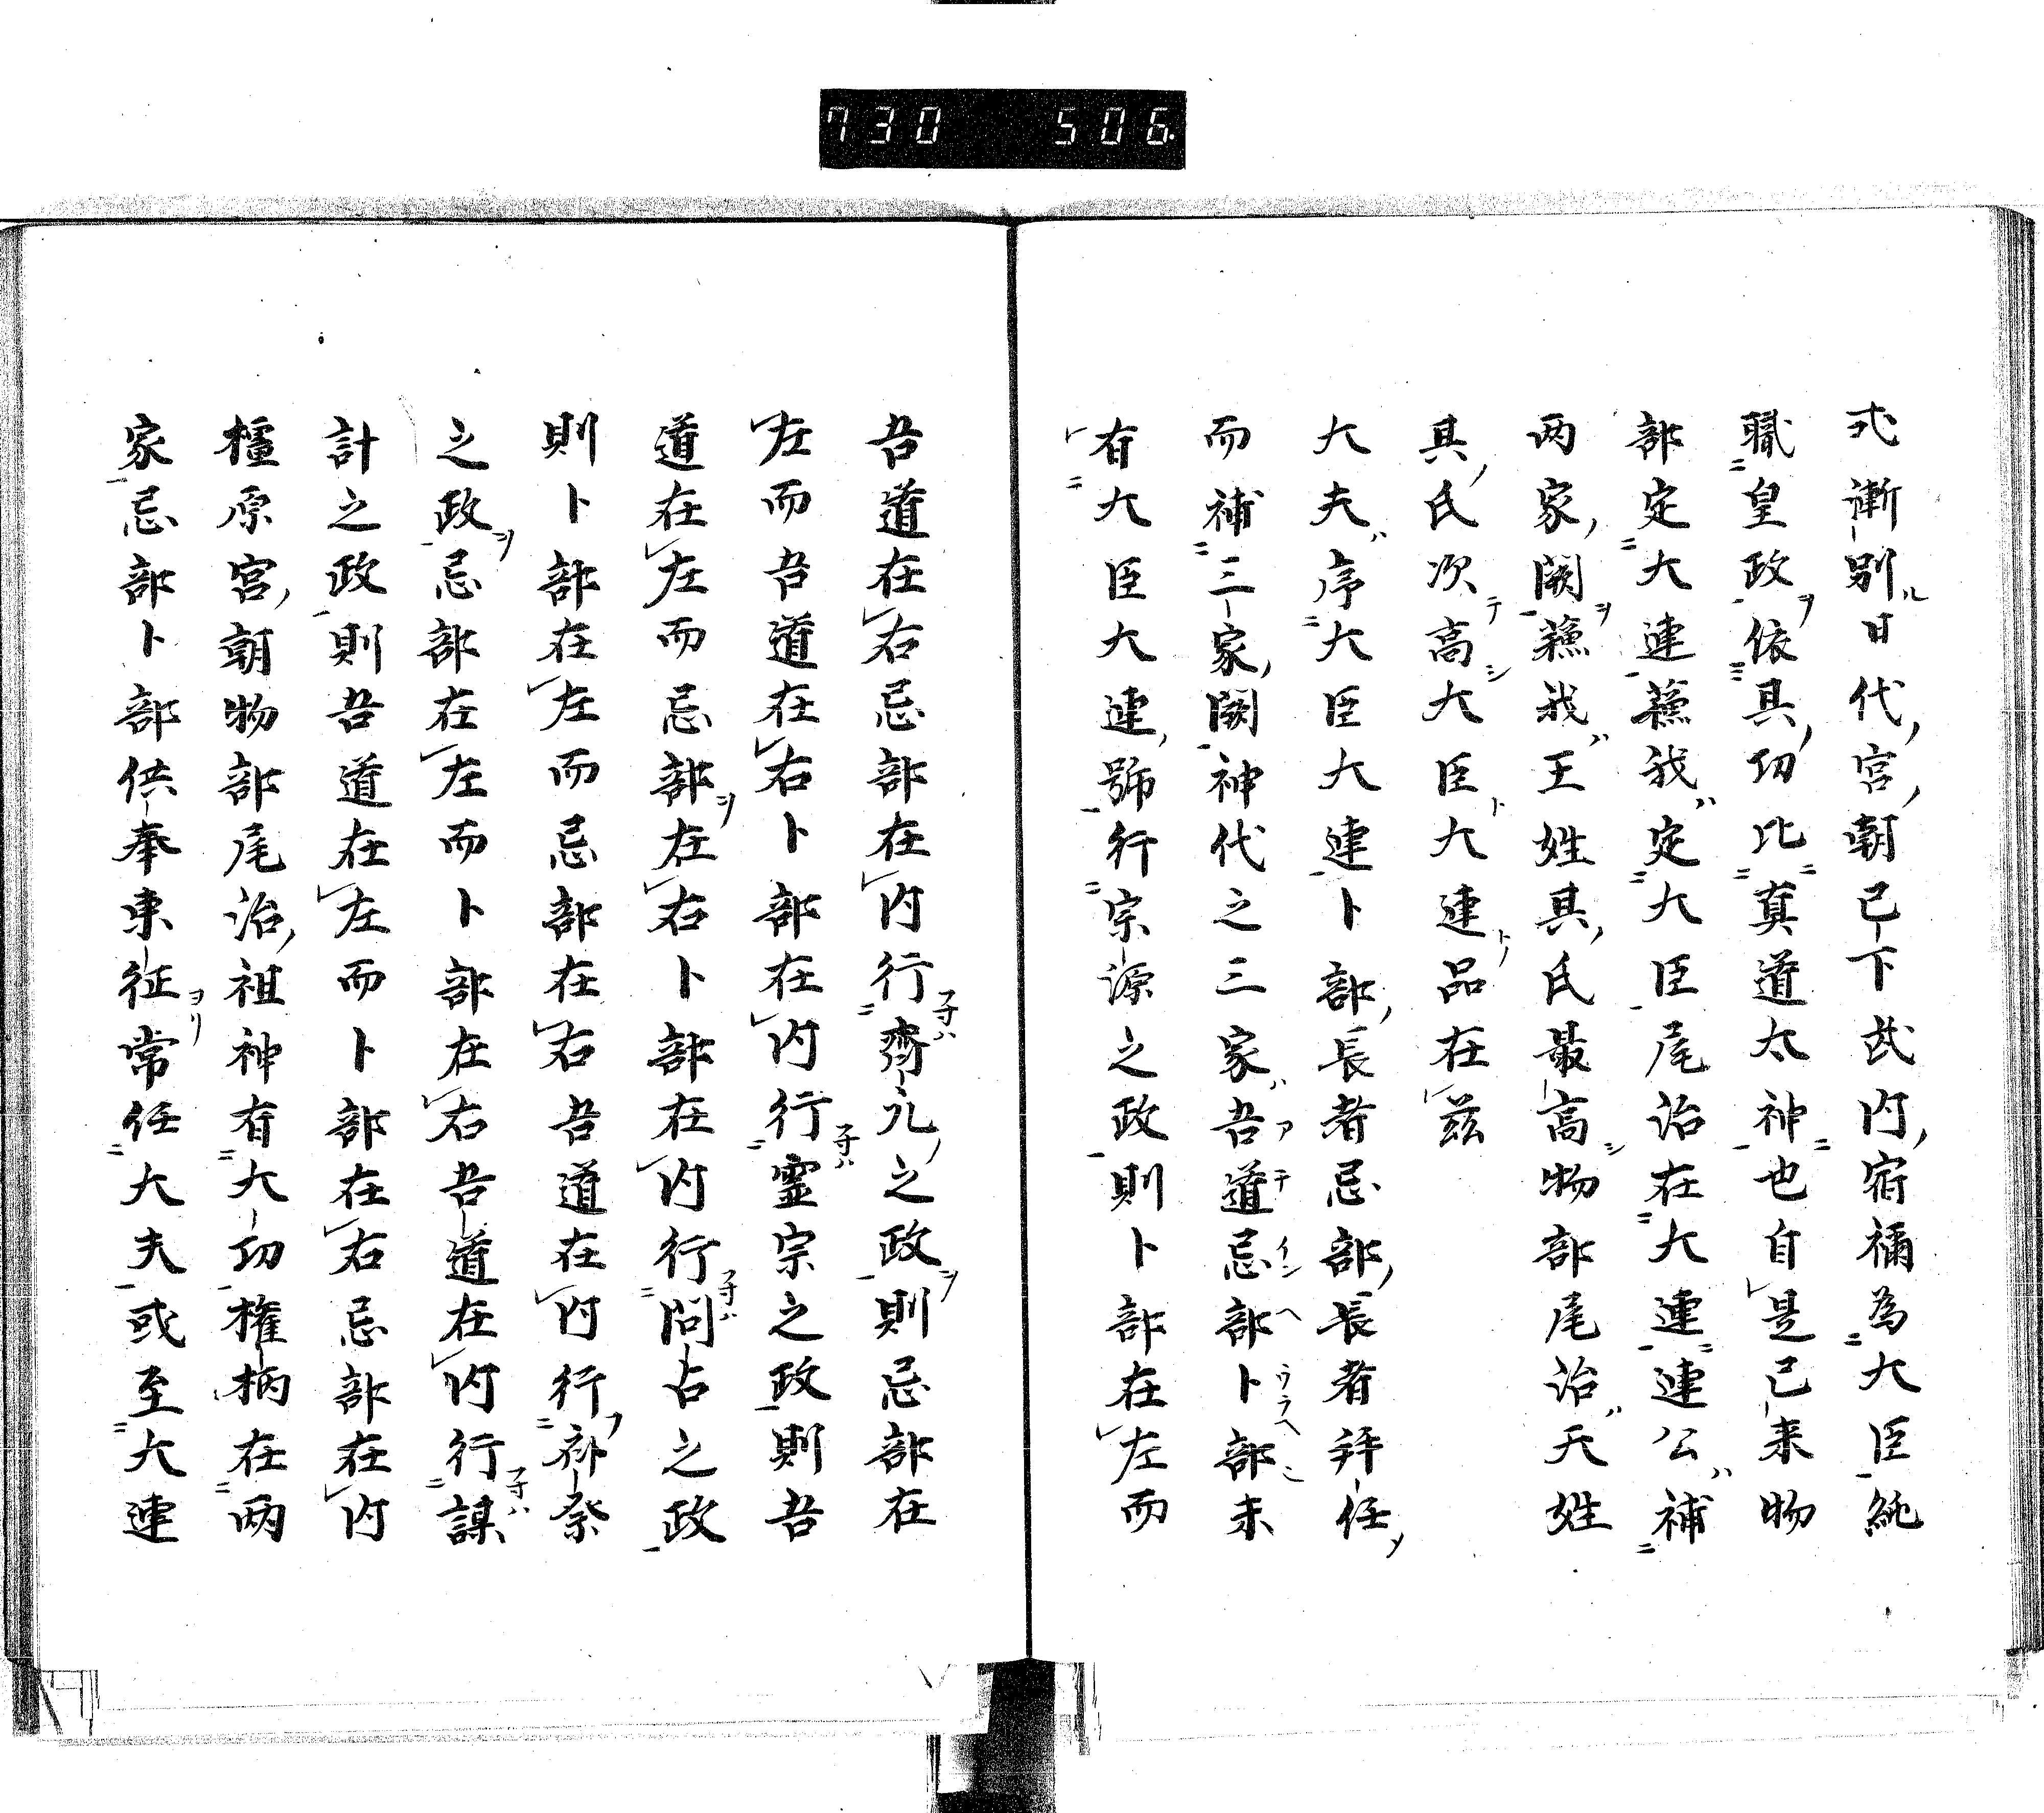 730 506
弐漸別日代宮朝已下武内宿禰為大臣純
職皇政依其功比真道太神也自是已来物
部定大連蘓我定大臣尾治在大連連公補
两家闕蘓我王姓其氏最高物部尾治天姓
其氏次高大臣大連品在兹
大夫序大臣大連卜部長者忌部長者拜任
而補三家闕神代之三家吾道忌部卜部未
有大臣大連號行宗源之政則卜部在左而
吾道在右忌部在内行齊元之政則忌部在
左而吾道在右卜部在内行霊宗之政則吾
道在左而忌部在右卜部在内行問占之政
則卜部在左而忌部在右吾道在内行祭
之政忌部在左而卜部在右吾道在内行謀
計之政則吾道在左而卜部在右忌部在内
橿原宮朝物部尾治祖神有大功権柄在两
家忌部卜部供奉東征常任大夫或至大連